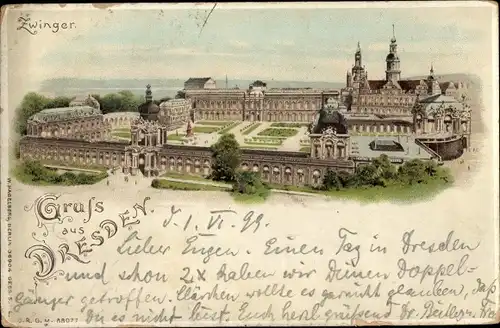 Zwinger.
Gruß
aus
DRESDEN.
1. VI. 99.
Lieber Eugen. Einen Tag in Dresden
und schon 2x haben wir Deinen Doppel-
gänger getroffen. Klärchen wollte es garnicht glauben, daß
Du es nicht bist. Euch herzl. grüssend Dr.
W. HAGELBERG, BERLIN
D.R.G.M.